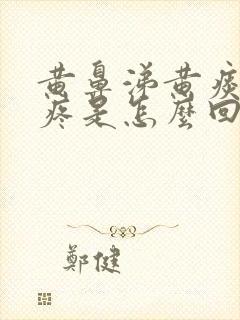 黄鼻涕黄痰
疼是怎麼回
鄭健